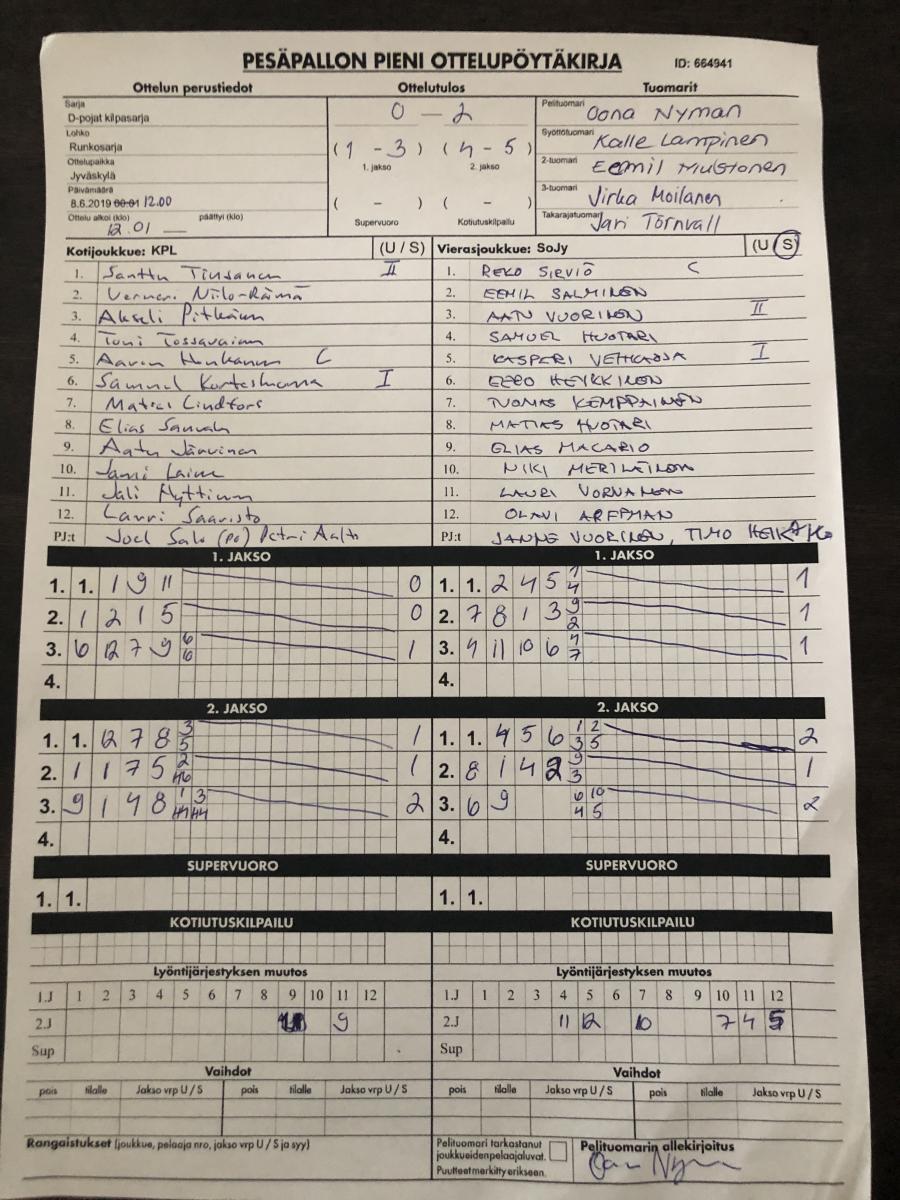 PESÄPALLON PIENI OTTELUPÖYTÄKIRJA ID: 664941
Ottelun perustiedot Ottelutulos Tuomarit
Sarja
D-pojat kilpasarja
Lohko
Runkosarja
Ottelupaikka
Jyväskylä
Päivämäärä
8.6.2019 00:01 12.00
Ottelu alkoi (klo) päättyi (klo)
12.01
0 - 2
(1 - 3) (4 - 5)
1. jakso 2. jakso
( - ) ( - )
Supervuoro Kotiutuskilpailu
Pelituomari Oona Nyman
Syöttötuomari Kalle Lampinen
2-tuomari Eemil Mustonen
3-tuomari Virka Moilanen
Takarajatuomari Jari Törnvall
Kotijoukkue: KPL (U / S)
1. Santtu Tiusanen II
2. Verneri Niilo-Rämä
3. Akseli Pitkänen
4. Toni Tossavainen
5. Aaron Hinkanen C
6. Samuel Kortesluoma I
7. Matias Lindfors
8. Elias
9. Aatu Jäävinen
10. Jami Laine
11. Jali Hyttinen
12. Lauri Saaristo
PJ:t Joel Salo (po) Petri Aalto
Vierasjoukkue: SoJy (U / S)
1. REKO SIRVIÖ C
2. EEMIL SALMINEN
3. AATU VUORINEN II
4. SAMUEL HUOTARI
5. KASPERI VEHKAOJA I
6. EERO HEIKKINEN
7. TUOMAS KEMPPAINEN
8. MATIAS HUOTARI
9. ELIAS MACARIO
10. NIKI MERILÄINEN
11. LAURI VORNANEN
12. OLAVI ARFFMAN
PJ:t JANNE VUORINEN, TIMO
1. JAKSO
1. 1. 1 9 11 0
2. 1 2 1 5 0
3. 6 12 7 9 6 6 1
4.
1. JAKSO
1. 1. 2 4 5 1 4 1
2. 7 8 1 3 9 2 1
3. 4 11 10 6 4 7 1
4.
2. JAKSO
1. 1. 12 7 8 3 5 1
2. 1 1 7 5 2 1
3. 9 1 4 8 1 3 2
4.
2. JAKSO
1. 1. 4 5 6 1 2 3 5 2
2. 8 1 4 2 9 3 1
3. 6 9 6 10 4 5 2
4.
SUPERVUORO
1. 1.
SUPERVUORO
1. 1.
KOTIUTUSKILPAILU
KOTIUTUSKILPAILU
Lyöntijärjestyksen muutos
1.J 1 2 3 4 5 6 7 8 9 10 11 12
2.J 9
Sup
Lyöntijärjestyksen muutos
1.J 1 2 3 4 5 6 7 8 9 10 11 12
2.J 11 12 10 7 4 5
Sup
Vaihdot
pois tilalle Jakso vrp U / S pois tilalle Jakso vrp U / S
Vaihdot
pois tilalle Jakso vrp U / S pois tilalle Jakso vrp U / S
Rangaistukset (joukkue, pelaaja nro, jakso vrp U / S ja syy)
Pelituomari tarkastanut
joukkueidenpelaajaluvat.
Puutteetmerkitty erikseen.
Pelituomarin allekirjoitus